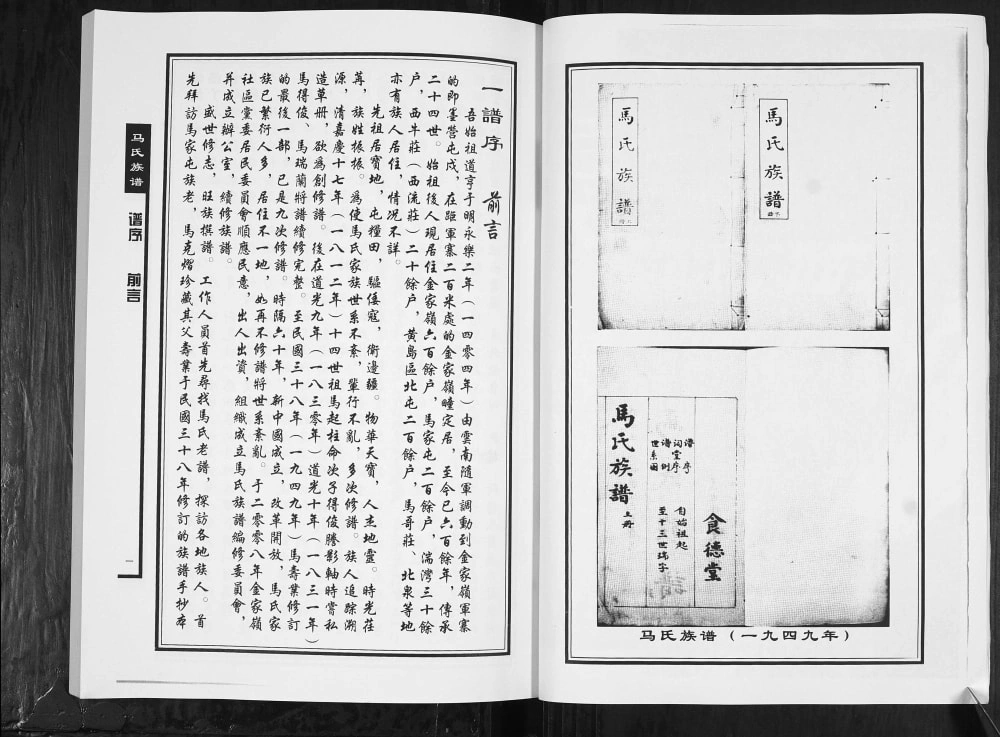 一譜序　前言
吾始祖道亨于明永樂二年（一四零四年）由雲南隨軍調動到金家嶺軍寨
的即墨營屯戍，在距軍寨二百米處的金家嶺疃定居，至今已六百餘年，傳承
二十四世。始祖後人現居住金家嶺六百餘户，馬家屯二百餘户，湍灣三十餘
户，西牛莊（西流莊）二十餘户，黄島區北屯二百餘户，馬哥莊、北泉等地
亦有族人居住，情况不詳。
先祖居寶地，屯糧田，驅倭寇，衛邊疆。物華天寶，人杰地靈。時光荏
苒，族姓振振。爲使馬氏家族世系不紊，輩行不亂，多次修譜。族人追踪溯
源，清嘉慶十七年（一八一二年）十四世祖馬起柱命次子得俊謄影軸時嘗私
造草册，欲爲創修譜。後在道光九年（一八三零年）道光十年（一八三一年）
馬得俊、馬瑞蘭將譜續修完整。至民國三十八年（一九四九年）馬壽業修訂
的最後一部，已是九次修譜。時隔六十年，新中國成立，改革開放，馬氏家
族已繁衍人多，居住不一地，如再不修譜將世系紊亂。于二零零八年金家嶺
社區黨委居民委員會順應民意，出人出資，組織成立馬氏族譜編修委員會，
并成立辦公室，續修族譜。
盛世修志，旺族撰譜。工作人員首先尋找馬氏老譜，探訪各地族人。首
先拜訪馬家屯族老，馬克熠珍藏其父壽業于民國三十八年修訂的族譜手抄本
马氏族谱
谱序　前言
一
馬氏族譜
下册
馬氏族譜
上册
食德堂
自始祖起
至十三世瑞字
譜序
祠堂序
譜例
世系圖
馬氏族譜
上册
马氏族谱（一九四九年）